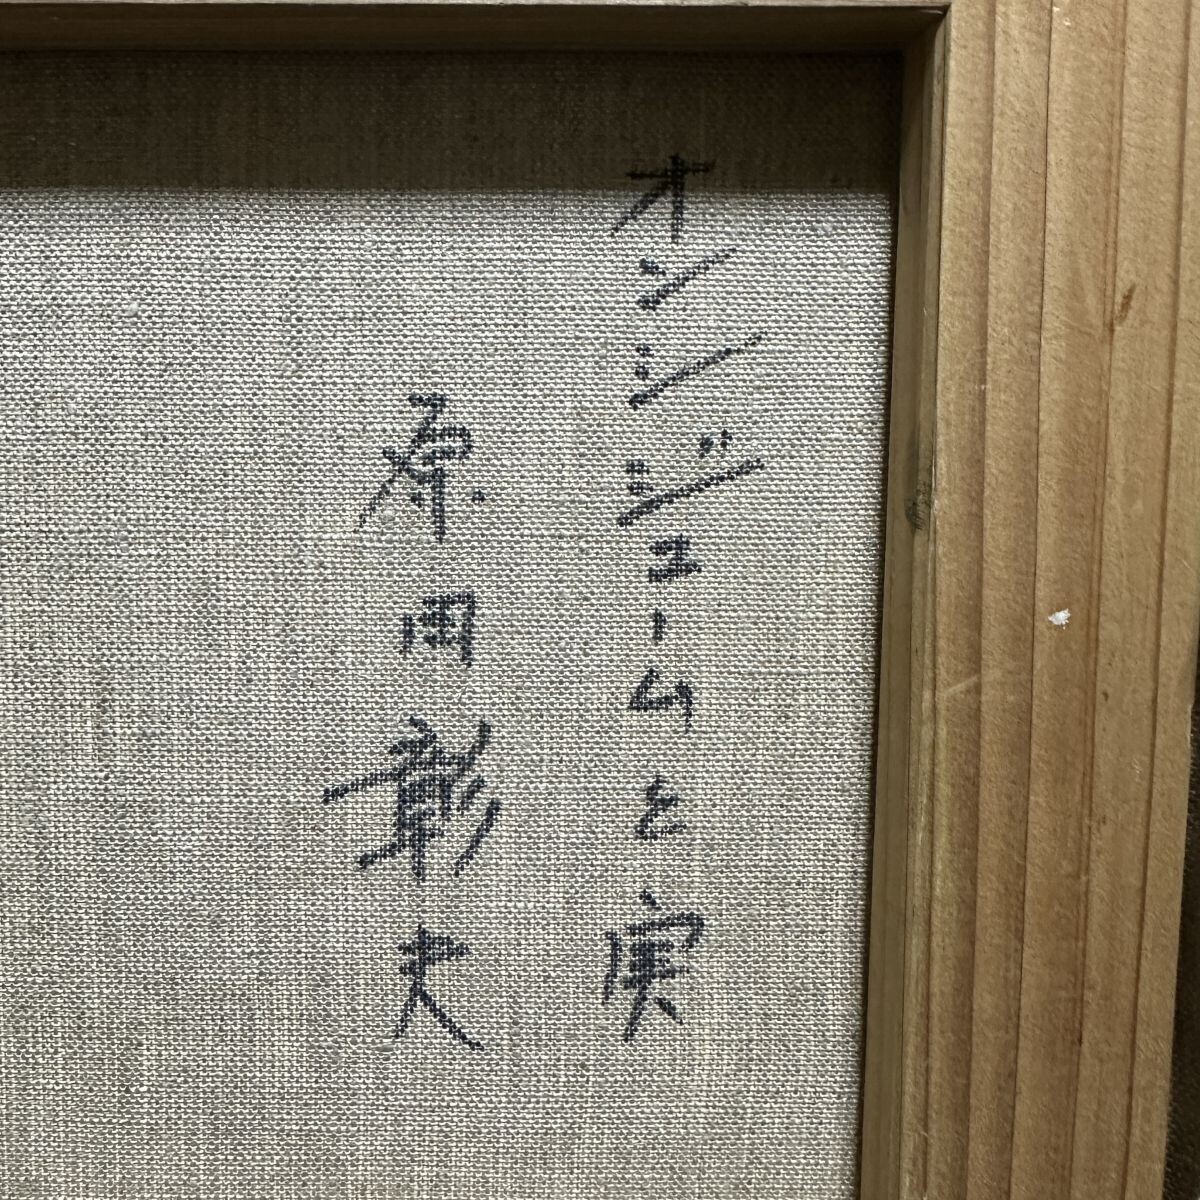 オンシジュームと実
原田彰夫